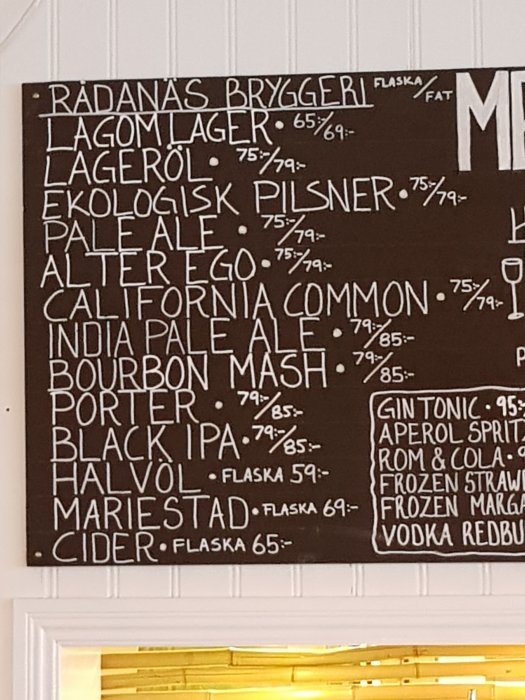 RÅDANÄS BRYGGERI FLASKA/FAT
LAGOM LAGER • 65:-/69:-
LAGERÖL • 75:-/79:-
EKOLOGISK PILSNER • 75:-/79:-
PALE ALE • 75:-/79:-
ALTER EGO • 75:-/79:-
CALIFORNIA COMMON • 75:-/79:-
INDIA PALE ALE • 79:-/85:-
BOURBON MASH • 79:-/85:-
PORTER • 79:-/85:-
BLACK IPA • 79:-/85:-
HALVÖL • FLASKA 59:-
MARIESTAD • FLASKA 69:-
CIDER • FLASKA 65:-
GIN TONIC • 95:-
APEROL SPRITZ
ROM & COLA •
FROZEN STRAW
FROZEN MARGA
VODKA REDBU